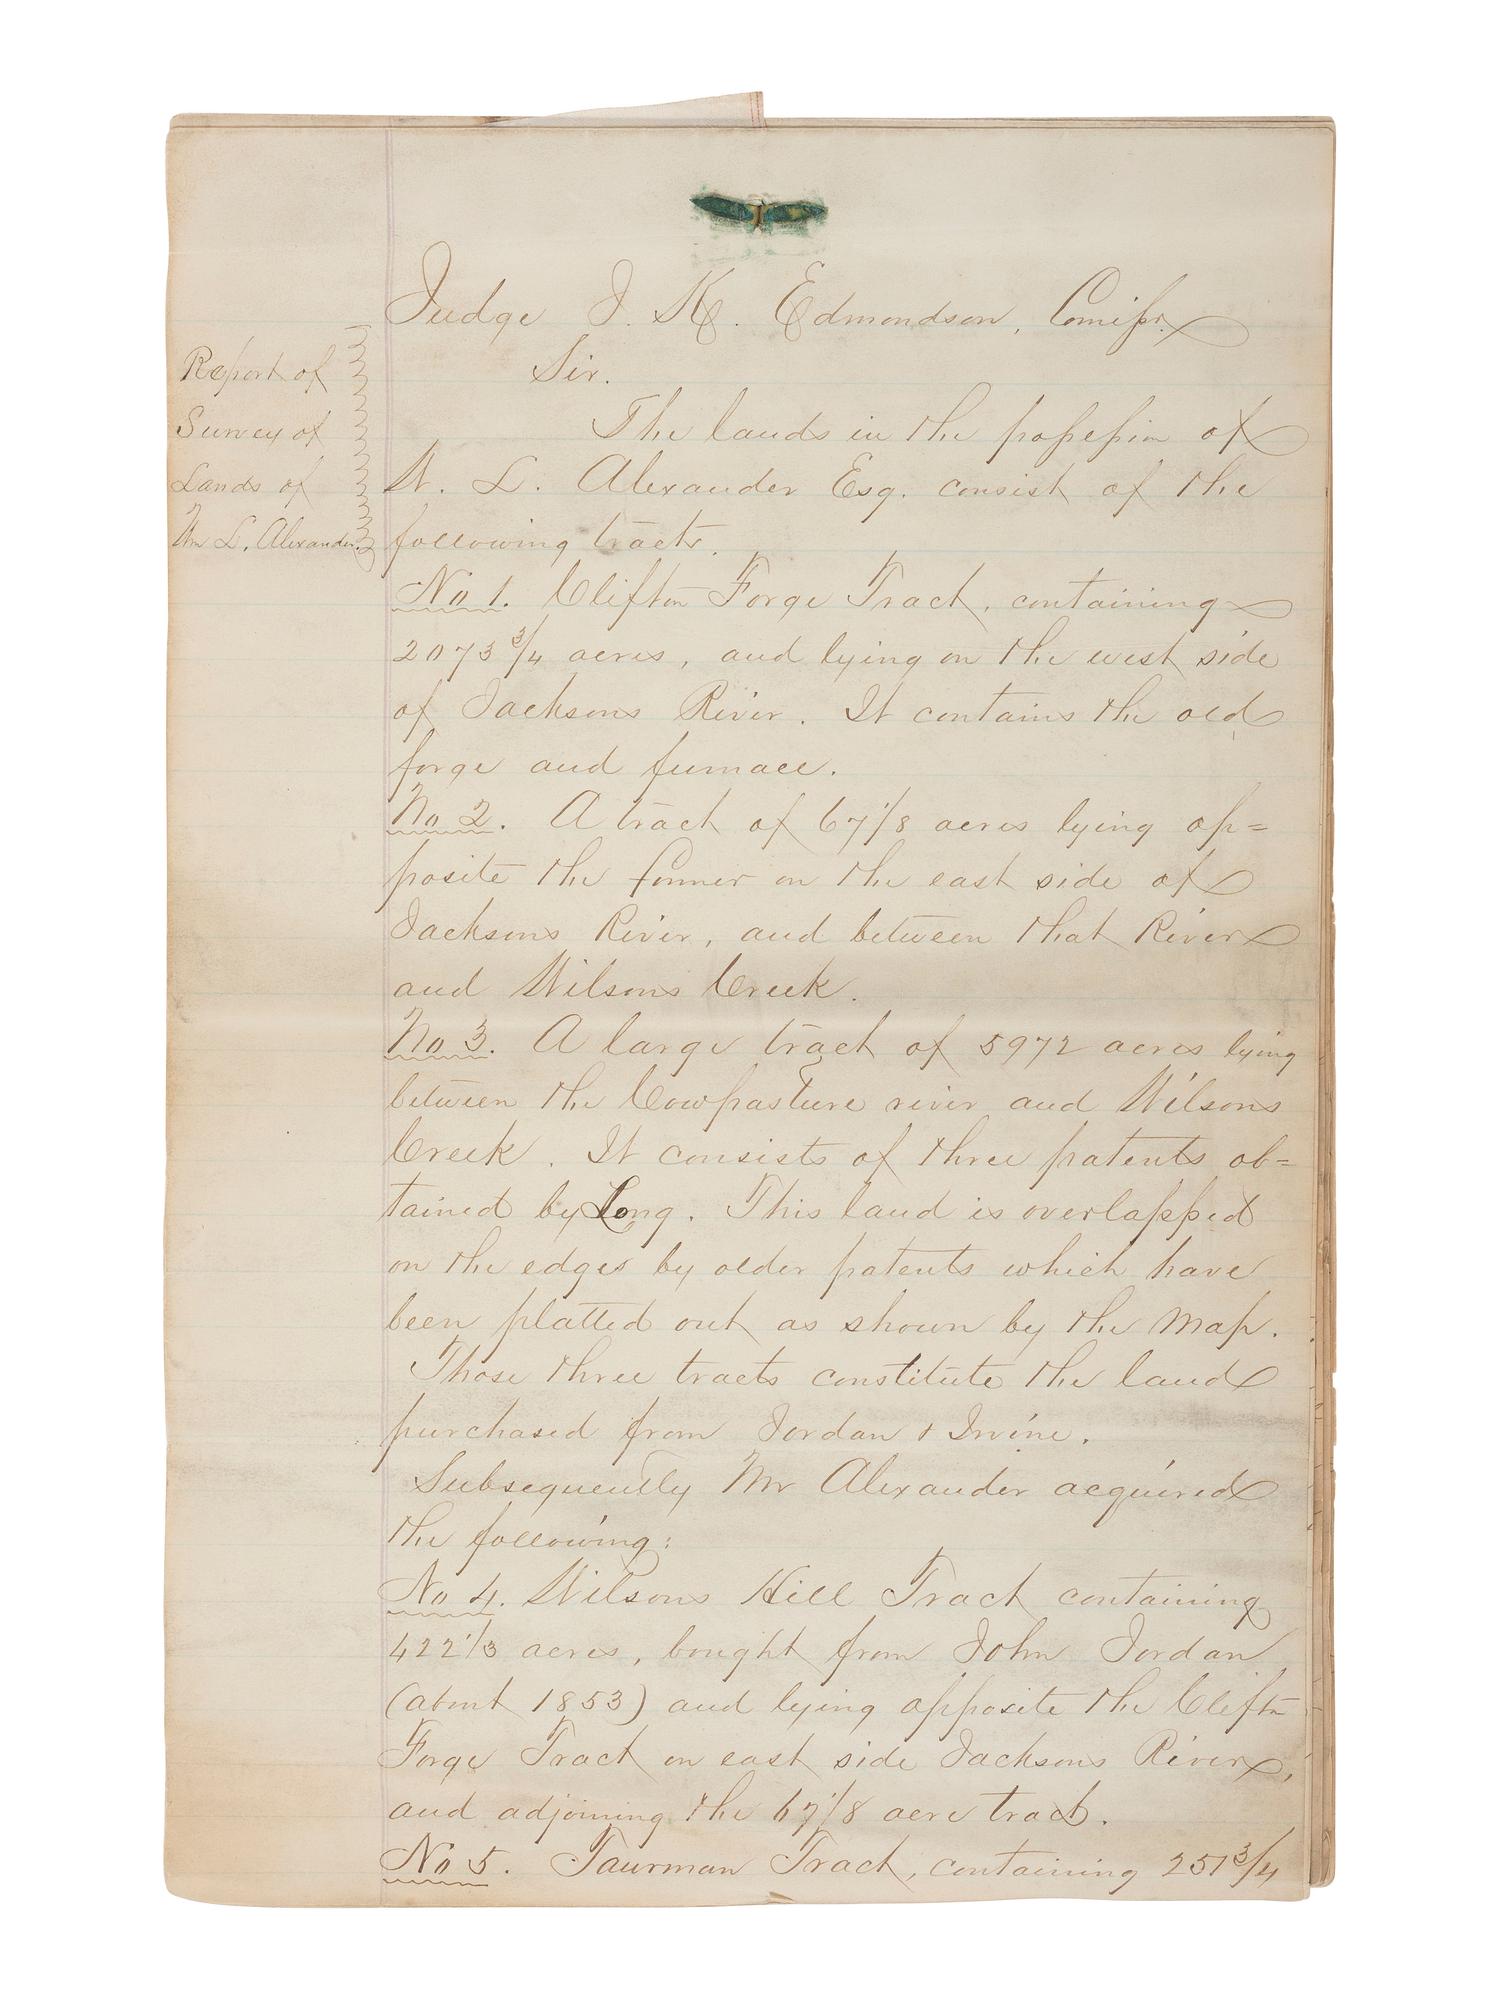 Judge J. K. Edmondson, Comissr.
Sir.
Report of
Survey of
Lands of
Wm L. Alexander.
The lands in the possession of
W. L. Alexander Esq. consist of the
following tracts.
No 1. Clifton Forge Tract, containing
2073 3/4 acres, and lying on the west side
of Jacksons River. It contains the old
forge and furnace.
No 2. A tract of 67 1/8 acres lying op=
posite the former on the east side of
Jacksons River, and between that River
and Wilsons Creek.
No 3. A large tract of 5972 acres lying
between the Cowpasture river and Wilsons
Creek. It consists of three patents ob=
tained by Long. This land is overlapped
on the edges by older patents which have
been platted out as shown by the map.
Those three tracts constitute the land
purchased from Jordan & Irvine.
Subsequently Mr Alexander acquired
the following:
No 4. Wilsons Hill Tract containing
422 1/3 acres, bought from John Jordan
(about 1853) and lying opposite the Clifton
Forge Tract on east side Jacksons River,
and adjoining the 67 1/8 acre tract.
No 5. Taurman Tract, containing 251 3/4